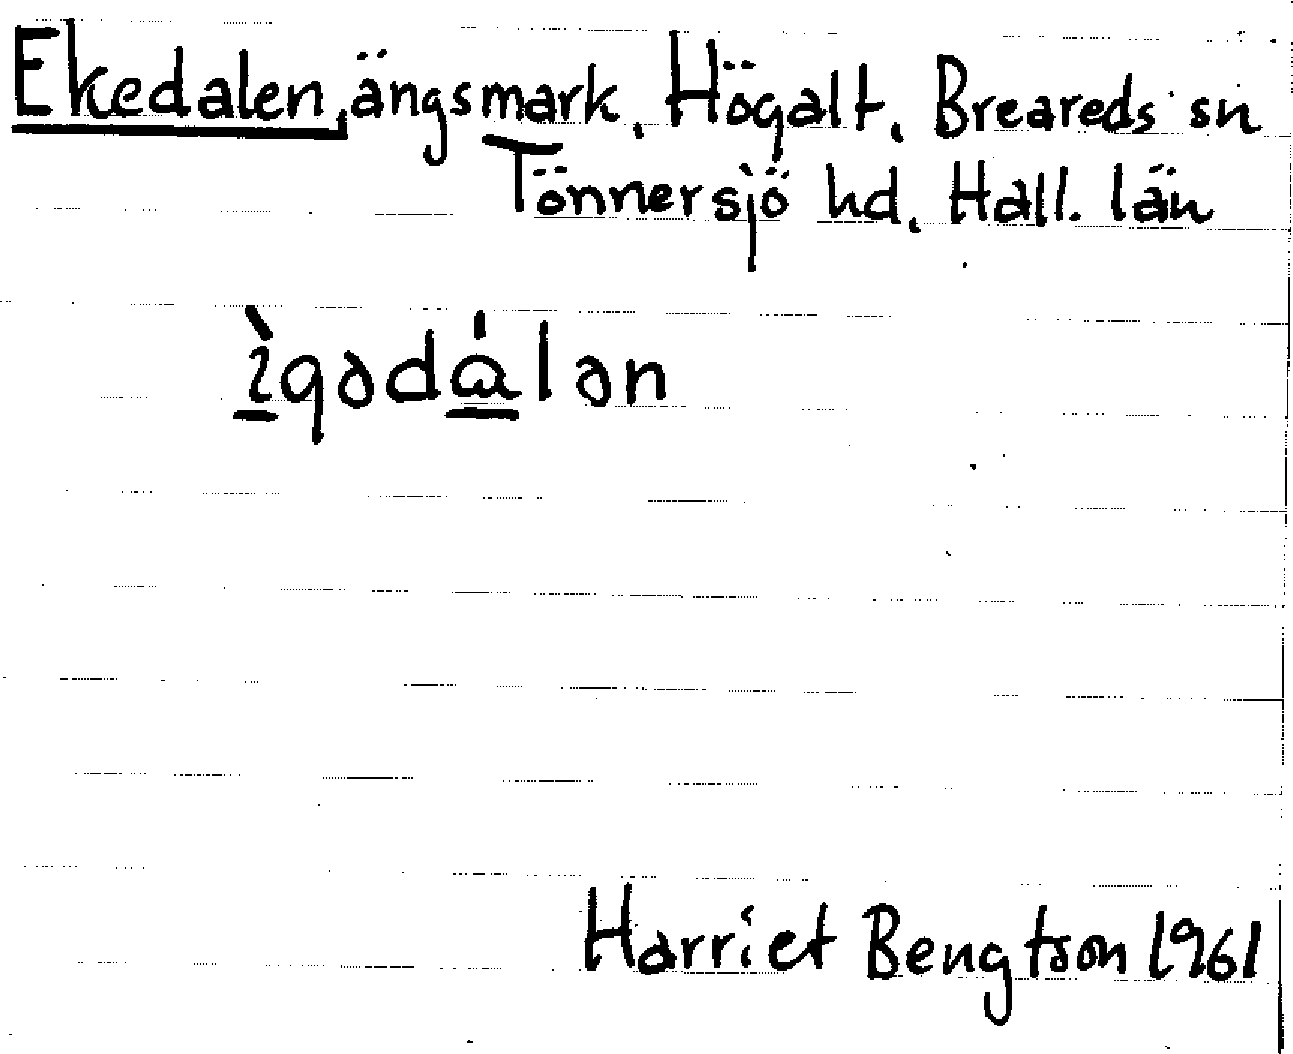 Ekedalen, ängsmark, Högalt, Breareds sn
Tönnersjö hd, Hall. län
ìgədálən
Harriet Bengtson 1961